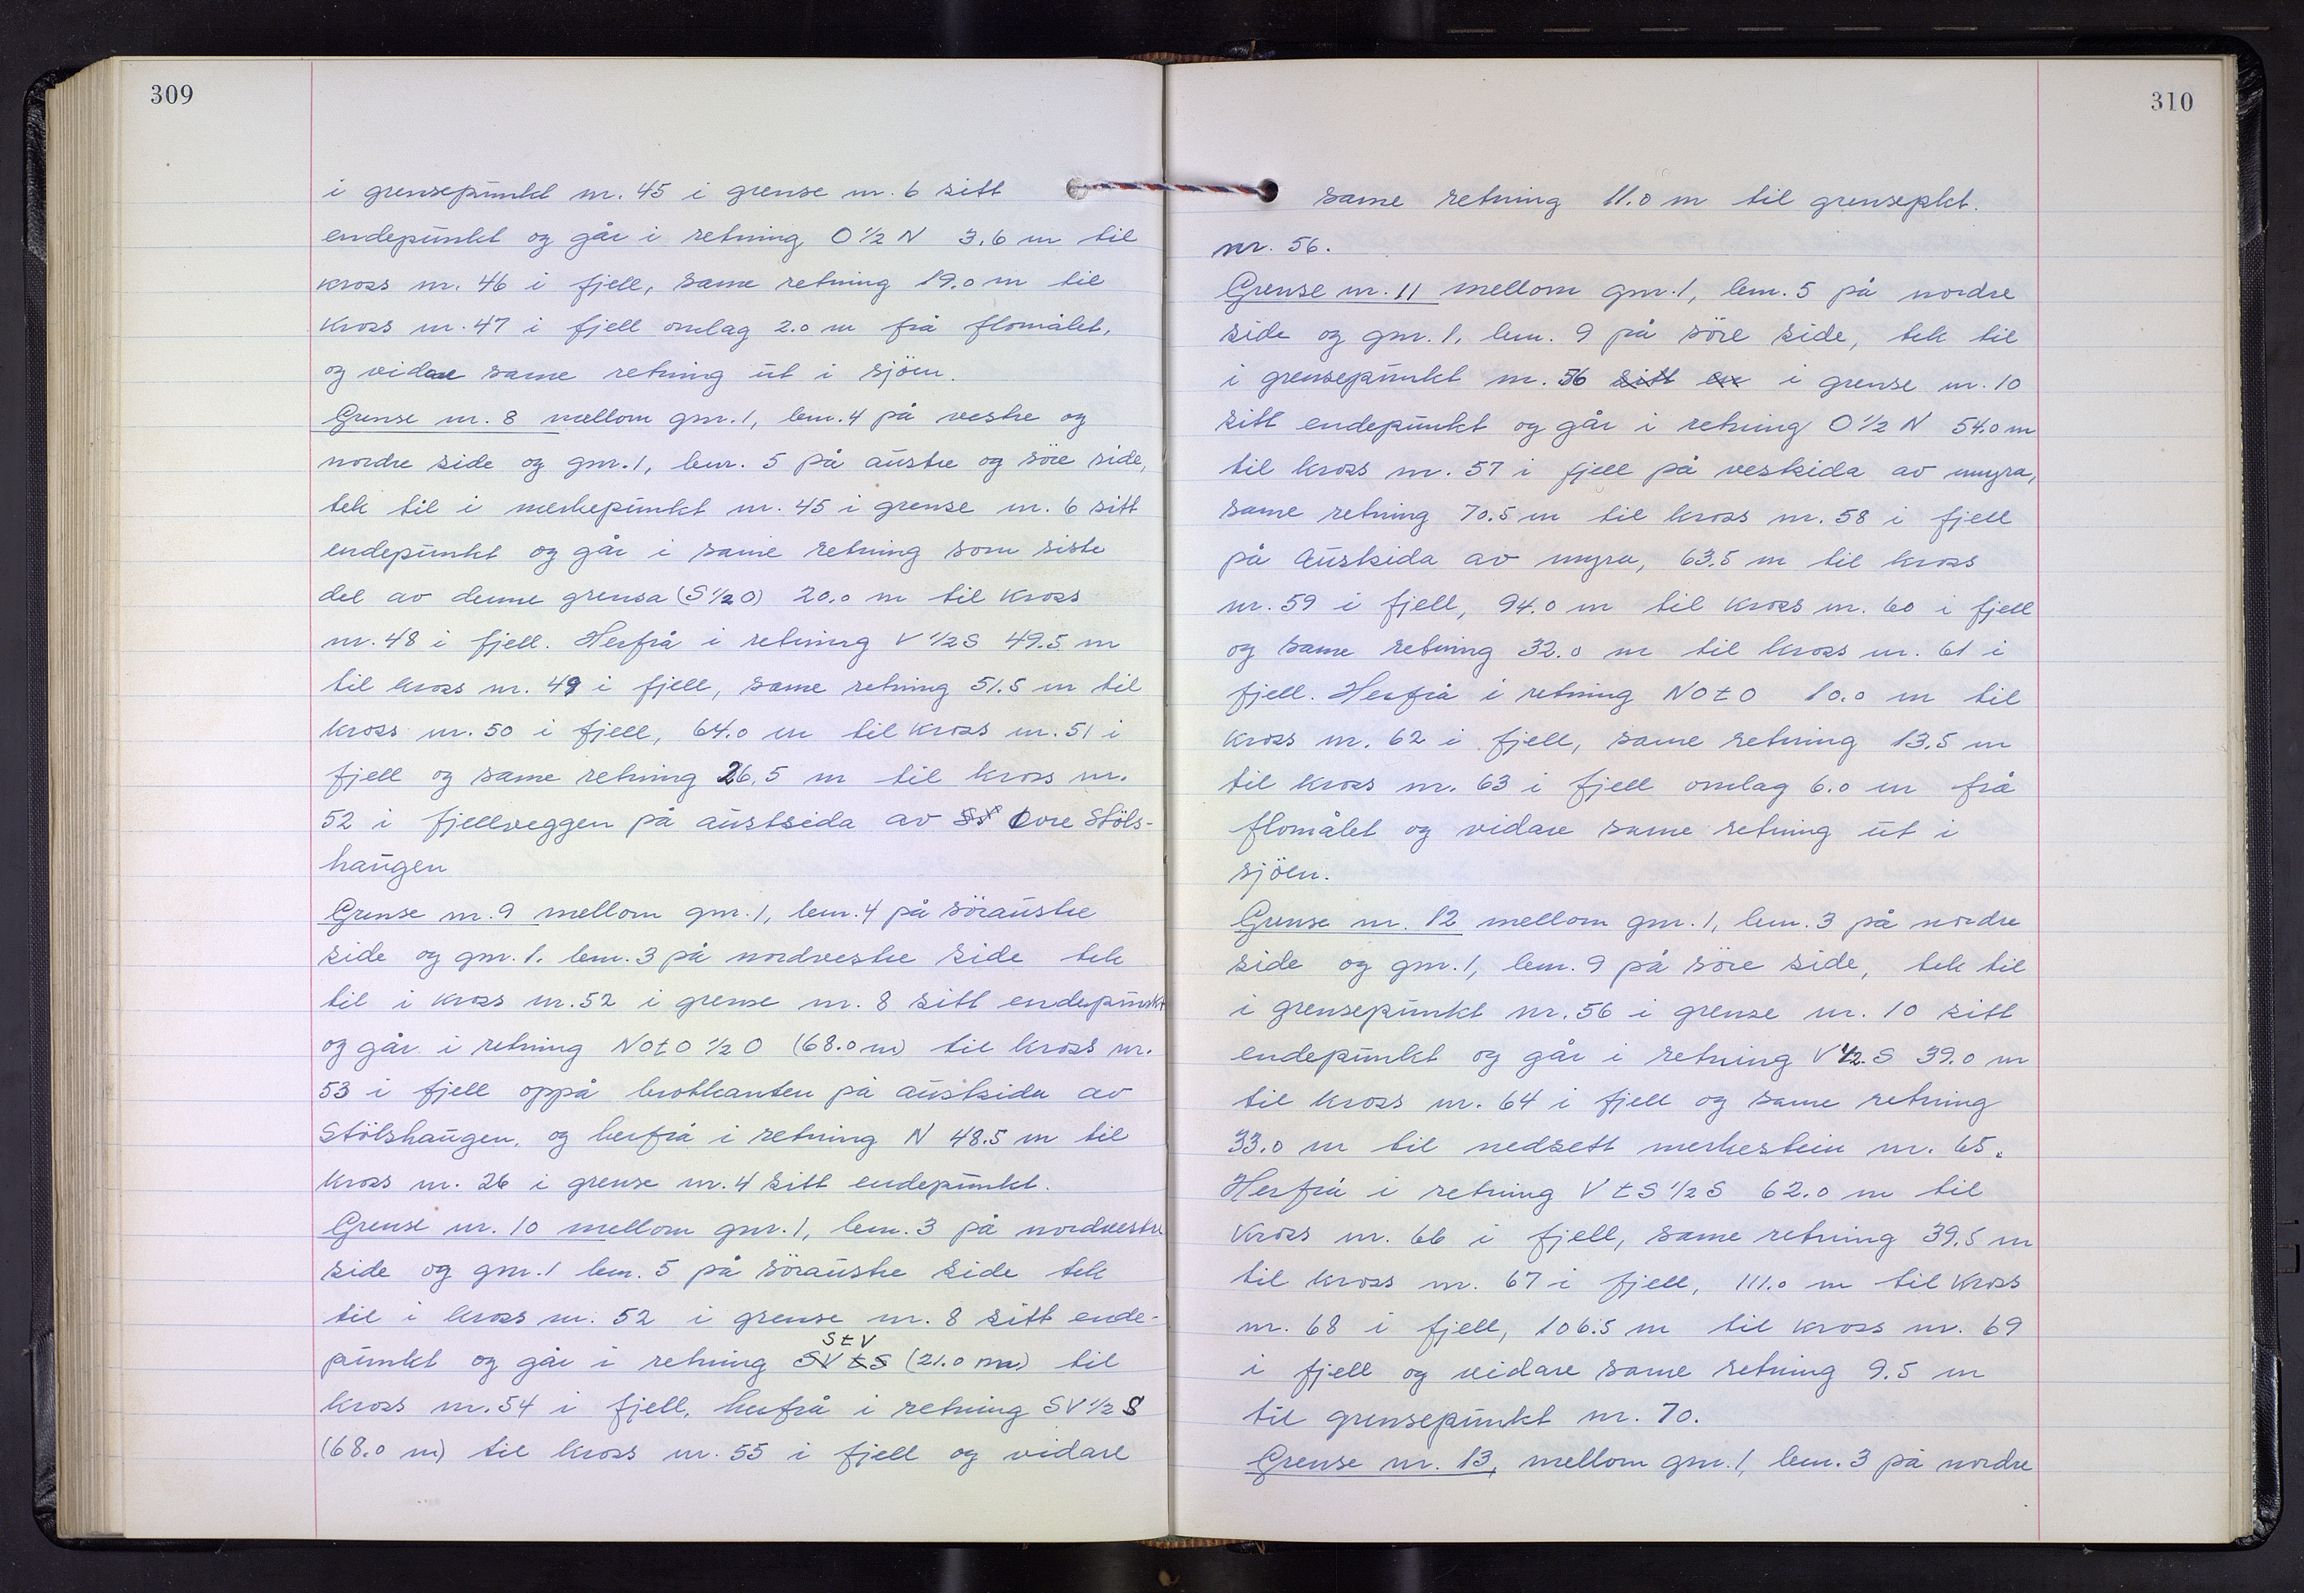 309
i grensepunkt nr. 45 i grense nr. 6 sitt
endepunkt og går i retning O ½ N 3.6 m til
kross nr. 46 i fjell, same retning 19.0 m til
kross nr. 47 i fjell omlag 2.0 m frå flomålet,
og vidare same retning ut i sjöen.
Grense nr. 8 mellom gnr. 1, bnr. 4 på vestre og
nordre side og gnr. 1, bnr. 5 på austre og söre side,
tek til i merkepunkt nr. 45 i grense nr. 6 sitt
endepunkt og går i same retning som siste
del av denne grensa (S ½ O) 20.0 m til kross
nr. 48 i fjell. Herfrå i retning V ½ S 49.5 m
til kross nr. 49 i fjell, same retning 51.5 m til
kross nr. 50 i fjell, 64.0 m til kross nr. 51 i
fjell og same retning 26.5 m til kross nr.
52 i fjellveggen på austsida av Övre Stöls-
haugen
Grense nr. 9 mellom gnr. 1, bnr. 4 på söraustre
side og gnr. 1. bnr. 3 på nordvestre side tek
til i kross nr. 52 i grense nr. 8 sitt endepunkt
og går i retning NOtO ½ O (68.0 m) til kross nr.
53 i fjell oppå brotkanten på austsida av
Stölshaugen, og herfrå i retning N 48.5 m til
kross nr. 26 i grense nr. 4 sitt endepunkt.
Grense nr. 10 mellom gnr. 1, bnr. 3 på nordvestre
side og gnr. 1 bnr. 5 på söraustre side tek
til i kross nr. 52 i grense nr. 8 sitt ende-
StV
punkt og går i retning SVtS (21.0 m) til
kross nr. 54 i fjell, herfrå i retning SV ½ S
(68.0 m) til kross nr. 55 i fjell og vidare
310
same retning 11.0 m til grensepkt.
nr. 56.
Grense nr. 11 mellom gnr. 1, bnr. 5 på nordre
side og gnr. 1, bnr. 9 på söre side, tek til
i grensepunkt nr. 56 sitt en i grense nr. 10
sitt endepunkt og går i retning O ½ N 54.0 m
til kross nr. 57 i fjell på vestsida av myra,
same retning 70.5 m til kross nr. 58 i fjell
på austsida av myra, 63.5 m til kross
nr. 59 i fjell, 94.0 m til kross nr. 60 i fjell
og same retning 32.0 m til kross nr. 61 i
fjell. Herfrå i retning NOtO 10.0 m til
kross nr. 62 i fjell, same retning 13.5 m
til kross nr. 63 i fjell omlag 6.0 m frå
flomålet og vidare same retning ut i
sjöen.
Grense nr. 12 mellom gnr. 1, bnr. 3 på nordre
side og gnr. 1, bnr. 9 på söre side, tek til
i grensepunkt nr. 56 i grense nr. 10 sitt
endepunkt og går i retning V ½ S 39.0 m
til kross nr. 64 i fjell og same retning
33.0 m til nedsett merkestein nr. 65.
Herfrå i retning VtS ½ S 62.0 m til
kross nr. 66 i fjell, same retning 39.5 m
til kross nr. 67 i fjell, 111.0 m til kross
nr. 68 i fjell, 106.5 m til kross nr. 69
i fjell og vidare same retning 9.5 m
til grensepunkt nr. 70.
Grense nr. 13, mellom gnr. 1, bnr. 3 på nordre